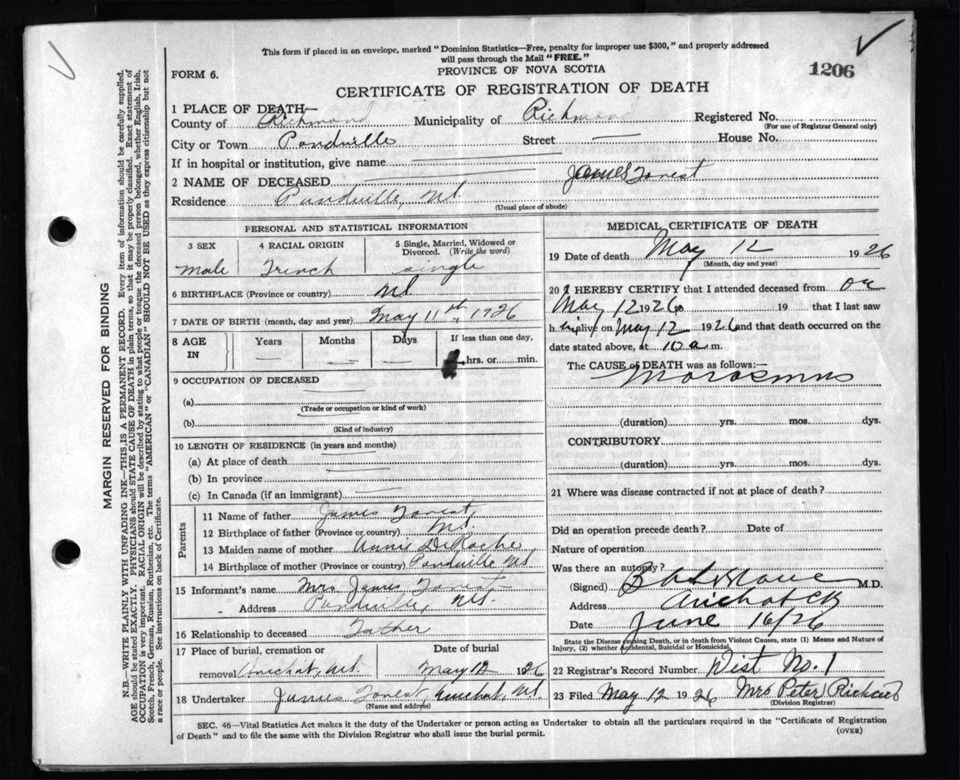 This form if placed in an envelope, marked "Dominion Statistics—Free, penalty for improper use $300," and properly addressed
will pass through the Mail "FREE."
FORM 6.
PROVINCE OF NOVA SCOTIA
1206
CERTIFICATE OF REGISTRATION OF DEATH
1 PLACE OF DEATH—
County of Richmond Municipality of Richmond Registered No.
(For use of Registrar General only)
City or Town Pondville Street House No.
If in hospital or institution, give name
2 NAME OF DECEASED James Forest
Residence Pondville, NS
(Usual place of abode)
PERSONAL AND STATISTICAL INFORMATION
3 SEX 4 RACIAL ORIGIN 5 Single, Married, Widowed or Divorced. (Write the word)
male French single
6 BIRTHPLACE (Province or country) NS
7 DATE OF BIRTH (month, day and year) May 11th 1926
8 AGE IN Years Months Days If less than one day,
hrs. or min.
9 OCCUPATION OF DECEASED
(a)
(Trade or occupation or kind of work)
(b)
(Kind of industry)
10 LENGTH OF RESIDENCE (in years and months)
(a) At place of death
(b) In province
(c) In Canada (if an immigrant)
Parents
11 Name of father James Forest
12 Birthplace of father (Province or country) NS
13 Maiden name of mother Annie DeRoche
14 Birthplace of mother (Province or country) Pondville NS
15 Informant's name Mrs James Forest
Address Pondville, NS.
16 Relationship to deceased Father
17 Place of burial, cremation or Date of burial
removal Arichat, NS. May 12 1926
18 Undertaker James Forest, Arichat, NS
(Name and address)
MEDICAL CERTIFICATE OF DEATH
19 Date of death May 12 1926
(Month, day and year)
20 I HEREBY CERTIFY that I attended deceased from on
May 12 1926 19 that I last saw
h im alive on May 12 1926 and that death occurred on the
date stated above, at 10 a m.
The CAUSE of DEATH was as follows:—
Morasmus
(duration) yrs. mos. dys.
CONTRIBUTORY
(duration) yrs. mos. dys.
21 Where was disease contracted if not at place of death?
Did an operation precede death? Date of
Nature of operation
Was there an autopsy?
(Signed) M.D.
Address Arichat CB
Date June 16/26
State the Disease causing Death, or in death from Violent Causes, state (1) Means and Nature of
Injury, (2) whether Accidental, Suicidal or Homicidal.
22 Registrar's Record Number Dist No. 1
23 Filed May 12 1926 Mrs Peter Richard
(Division Registrar)
SEC. 46—Vital Statistics Act makes it the duty of the Undertaker or person acting as Undertaker to obtain all the particulars required in the "Certificate of Registration
of Death" and to file the same with the Division Registrar who shall issue the burial permit.
(OVER)
MARGIN RESERVED FOR BINDING
N.B.—WRITE PLAINLY WITH UNFADING INK—THIS IS A PERMANENT RECORD. Every item of information should be carefully supplied.
AGE should be stated EXACTLY. PHYSICIANS should STATE CAUSE OF DEATH in plain terms, so that it may be properly classified. Exact statement of
OCCUPATION is very important. RACIAL ORIGIN will be described by stating to what people or tongue the deceased person belonged, whether English, Irish,
Scotch, French, German, Russian, Ruthenian, etc. The terms "AMERICAN" or "CANADIAN" SHOULD NOT BE USED as they express citizenship but not
a race or people. See instructions on back of Certificate.